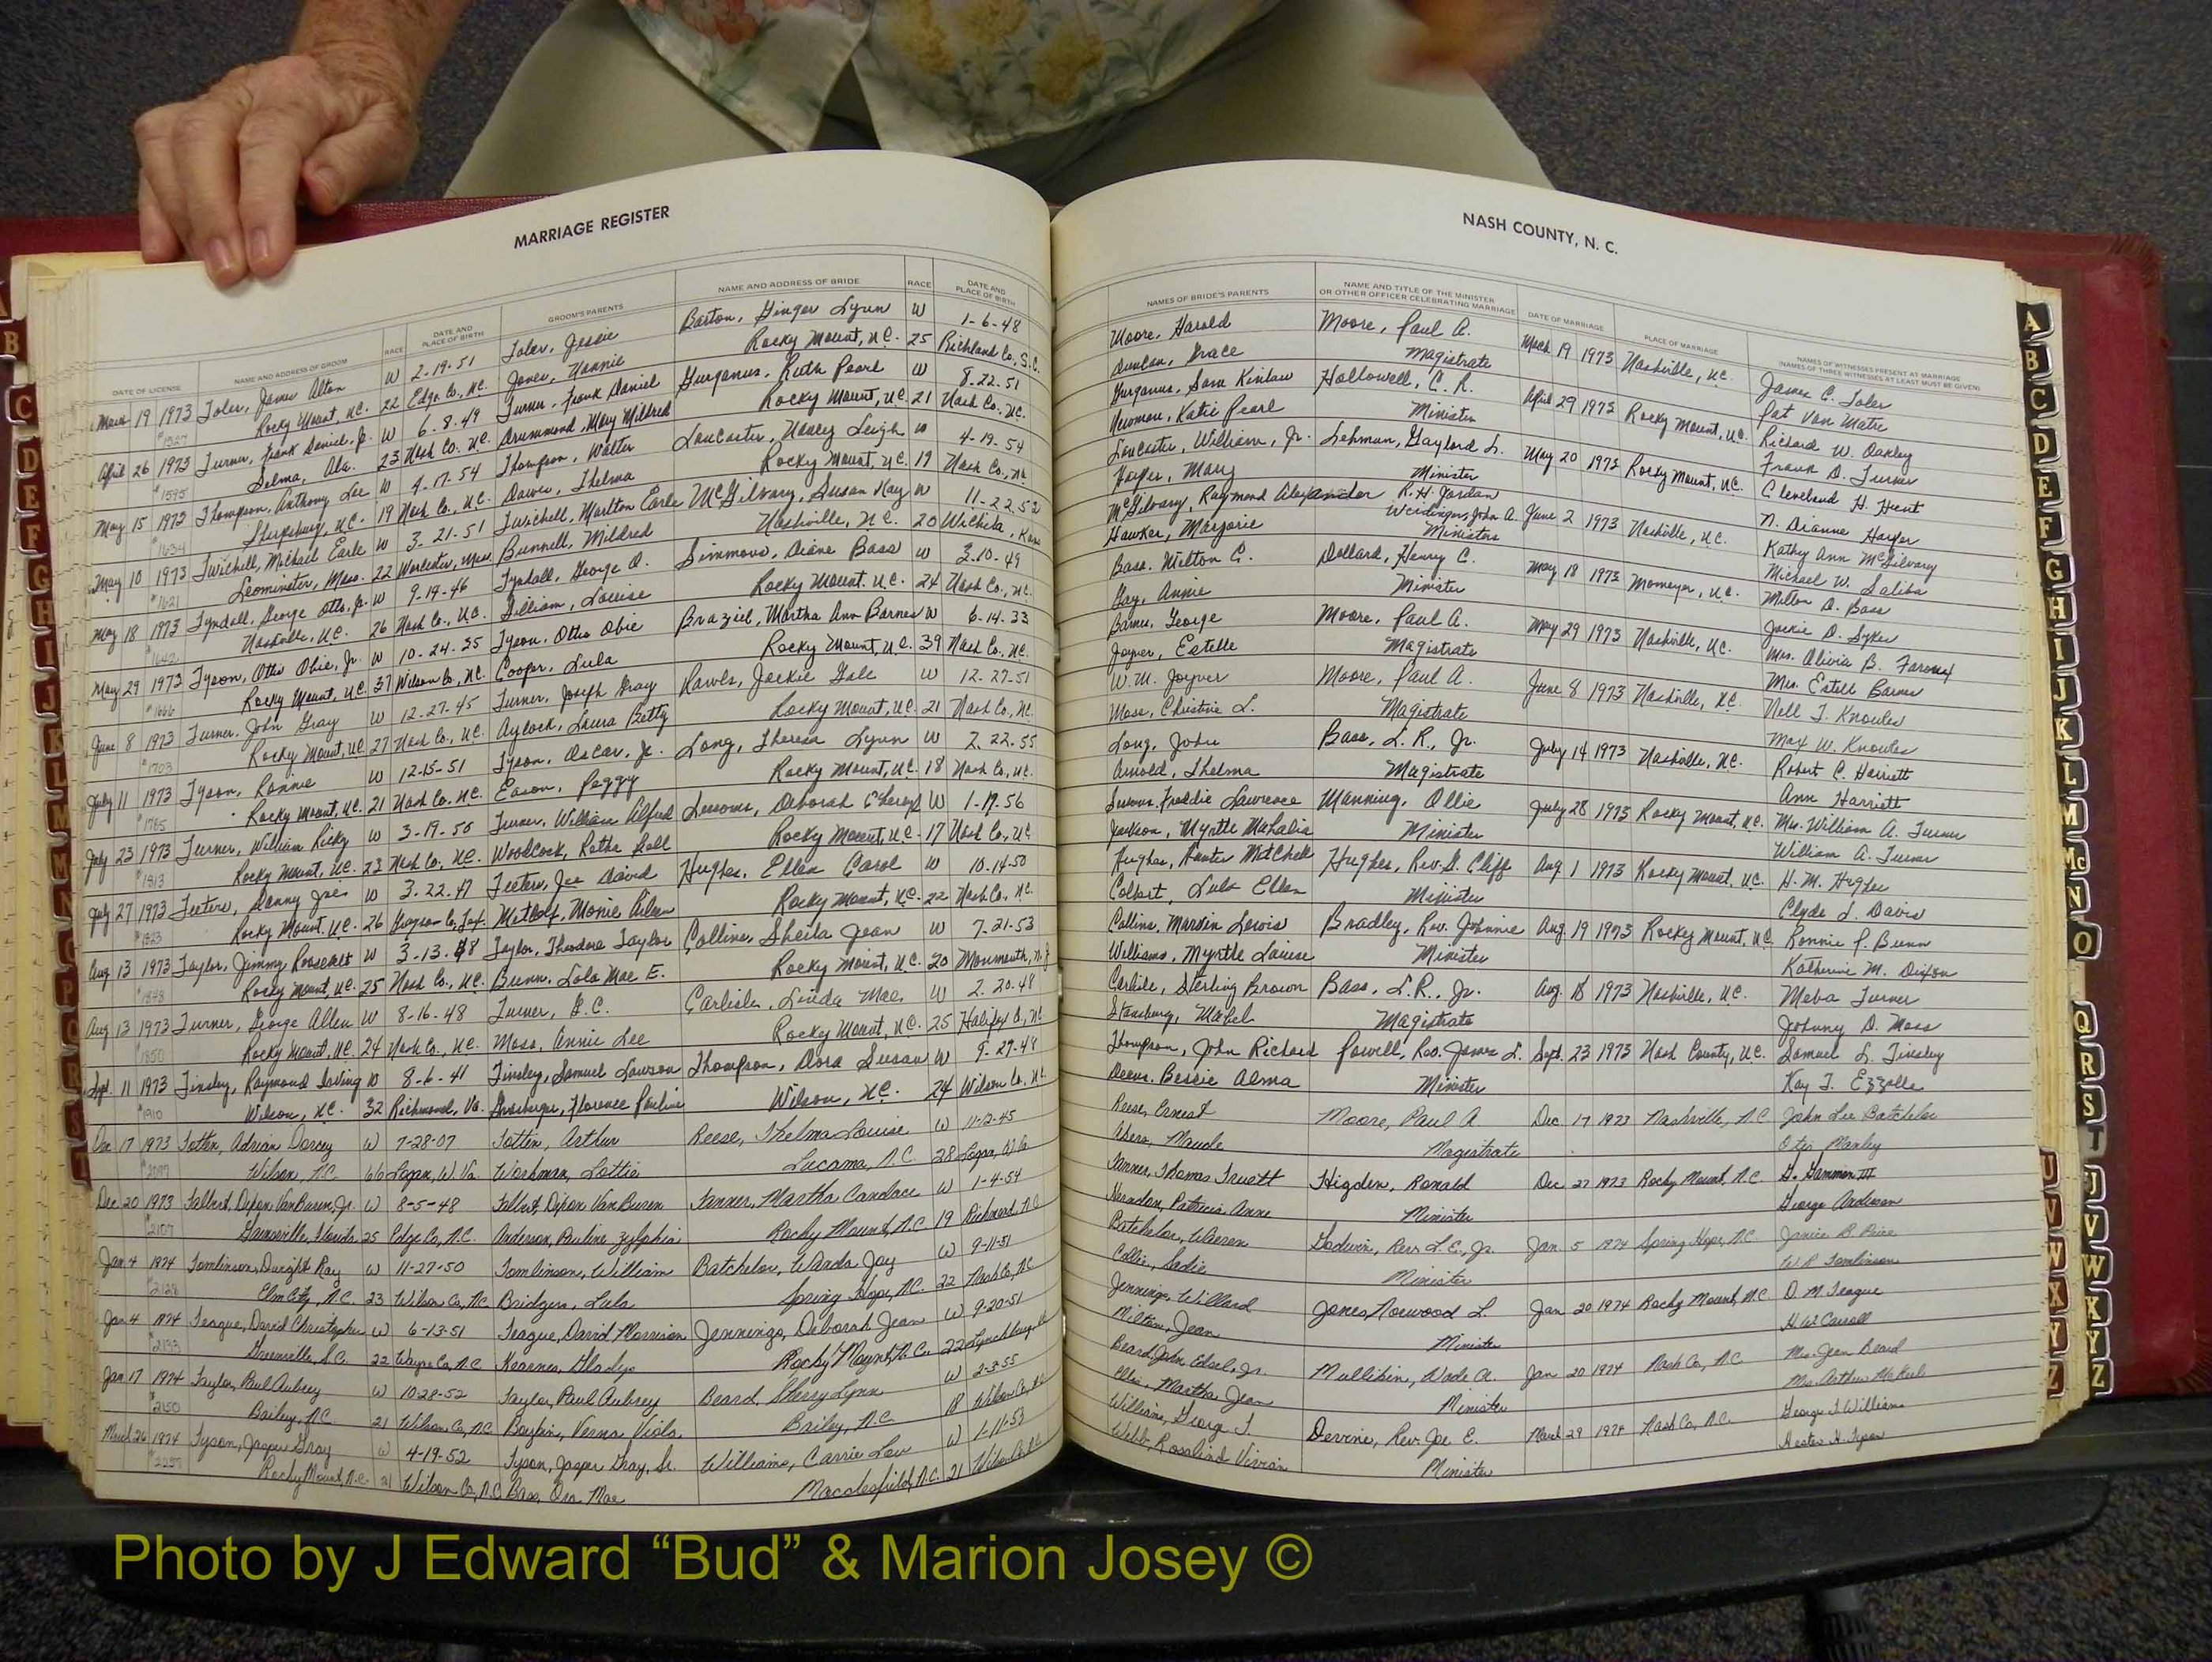 MARRIAGE REGISTER
DATE OF LICENSE NAME AND ADDRESS OF GROOM RACE DATE AND PLACE OF BIRTH GROOM'S PARENTS NAME AND ADDRESS OF BRIDE RACE DATE AND PLACE OF BIRTH
March 19 1973 Toler, James Alton W 2-19-51 Toler, Jessie Barton, Ginger Lynn W 1-6-48
Rocky Mount, N.C. 22 Edge. Co., N.C. Jones, Nannie Rocky Mount, N.C. 25 Richland Co., S.C.
April 26 1973 Turner, Frank Daniel, Jr. W 6-8-49 Turner, Frank Daniel Gurganus, Ruth Pearl W 8-22-51
#1595 Selma, Ala. 23 Nash Co. N.C. Drummond, Mary Mildred Rocky Mount, N.C. 21 Nash Co., N.C.
May 15 1973 Thompson, Anthony Lee W 4-17-54 Thompson, Walter Lancaster, Nancy Leigh W 4-19-54
#1634 Sharpsburg, N.C. 19 Nash Co., N.C. Dawes, Thelma Rocky Mount, N.C. 19 Nash Co., N.C.
May 10 1973 Twichell, Michael Earle W 3-21-51 Twichell, Marlton Earle McGilvary, Susan Kay W 11-22-52
#1621 Leominster, Mass. 22 Worcester, Mass. Bunnell, Mildred Nashville, N.C. 20 Wichita, Kans
May 18 1973 Tyndall, George Otto, Jr. W 9-19-46 Tyndall, George O. Simmons, Diane Bass W 3-10-49
#1642 Nashville, N.C. 26 Nash Co., N.C. Gilliam, Louise Rocky Mount, N.C. 24 Nash Co., N.C.
May 29 1973 Tyson, Otto Obie, Jr. W 10-24-35 Tyson, Otto Obie Braziel, Martha Ann Barnes W 6-14-33
#1666 Rocky Mount, N.C. 37 Wilson Co., N.C. Cooper, Lula Rocky Mount, N.C. 39 Nash Co., N.C.
June 8 1973 Turner, John Gray W 12-27-45 Turner, Joseph Gray Rawls, Jackie Gale W 12-27-51
#1703 Rocky Mount, N.C. 27 Nash Co., N.C. Aylock, Laura Betty Rocky Mount, N.C. 21 Nash Co., N.C.
July 11 1973 Tyson, Ronnie W 12-15-51 Tyson, Oscar, Jr. Long, Theresa Lynn W 2-22-55
#1785 Rocky Mount, N.C. 21 Nash Co., N.C. Eason, Peggy Rocky Mount, N.C. 18 Nash Co., N.C.
July 23 1973 Turner, William Ricky W 3-19-50 Turner, William Alfred Sessoms, Deborah W 1-19-56
#1813 Rocky Mount, N.C. 23 Nash Co., N.C. Woodcock, Retha Rocky Mount, N.C. 17 Nash Co., N.C.
July 27 1973 Teeters, Danny Joe W 3-22-47 Teeters, Joe David Hughes, Ellen Carol W 10-14-50
#1823 Rocky Mount, N.C. 26 Grayson Co., Tex. Metcalf, Monie Rocky Mount, N.C. 22 Nash Co., N.C.
Aug 13 1973 Taylor, Jimmy Roosevelt W 3-13-48 Taylor, Theodore Taylor Collins, Sheila Jean W 7-21-53
#1848 Rocky Mount, N.C. 25 Nash Co., N.C. Bunn, Lola Mae E. Rocky Mount, N.C. 20 Monmouth, N.J.
Aug 13 1973 Turner, George Allen W 8-16-48 Turner, B.C. Carlisle, Linda Mae W 2-20-48
#1850 Rocky Mount, N.C. 24 Nash Co., N.C. Moss, Annie Lee Rocky Mount, N.C. 25 Halifax Co., N.C.
Sept. 11 1973 Tinsley, Raymond Irving W 8-6-41 Tinsley, Samuel Lawson Thompson, Dora Susan W 9-27-48
#1910 Wilson, N.C. 32 Richmond, Va. Florence Pauline Wilson, N.C. 24 Wilson Co., N.C.
Dec 17 1973 Totten, Adrian Dorcey W 7-28-07 Totten, Arthur Reese, Thelma Louise W 11-12-45
#2097 Wilson, N.C. 66 Logan, W. Va. Workman, Lottie Lucama, N.C. 28 Logan, W.Va
Dec 20 1973 Talbert, Dixon VanBuren, Jr. W 8-5-48 Talbert, Dixon VanBuren Tanner, Martha Candace W 1-4-54
#2107 Gainesville, Florida 25 Edge Co, N.C. Anderson, Pauline Rocky Mount, N.C. 19
Jan 4 1974 Tomlinson, Dwight Ray W 11-27-50 Tomlinson, William Batchelor, Wanda Joy W 9-11-51
#2128 Elm City, N.C. 23 Wilson Co, N.C. Bridgers, Lula Spring Hope, N.C. 22 Nash Co, N.C.
Jan 4 1974 Teague, David Christopher W 6-13-51 Teague, David Morrison Jennings, Deborah Jean W 9-20-51
#2133 Greenville, S.C. 22 Wayne Co, N.C. Kearnes, Gladys Rocky Mount, N.C. 22 Lynchburg
Jan 17 1974 Taylor, Paul Aubrey W 10-28-52 Taylor, Paul Aubrey Beard, Sherry Lynn W 2-3-55
#2150 Bailey, N.C. 21 Wilson Co, N.C. Boykin, Verna Viola Bailey, N.C. 18 Wilson Co, N.C.
March 26 1974 Tyson, Jasper Gray W 4-19-52 Tyson, Jasper Gray, Sr. Williams, Carrie Lou W 1-11-53
Rocky Mount, N.C. 21 Wilson Co, N.C. Bass, Ora Mae Macclesfield, N.C. 21 Wilson Co
NASH COUNTY, N. C.
NAMES OF BRIDE'S PARENTS NAME AND TITLE OF THE MINISTER OR OTHER OFFICER CELEBRATING MARRIAGE DATE OF MARRIAGE PLACE OF MARRIAGE NAMES OF WITNESSES PRESENT AT MARRIAGE (NAMES OF THREE WITNESSES AT LEAST MUST BE GIVEN)
Moore, Harold Moore, Paul A. March 19 1973 Nashville, N.C. James C. Toler
Duncan, Grace Magistrate Pat Van Matre
Gurganus, Sam Kinlaw Hollowell, C. R. April 29 1973 Rocky Mount, N.C. Richard W. Oakley
Newmon, Katie Pearl Minister Frank D. Turner
Lancaster, William, Jr. Lehman, Gaylord L. May 20 1973 Rocky Mount, N.C. Cleveland H. Hunt
Harper, Mary Minister N. Dianne Harper
McGilvary, Raymond Alexander R. H. Jordan June 2 1973 Nashville, N.C. Kathy Ann McGilvary
Hawker, Marjorie Weidinger, John A. Ministers Michael W. Saliba
Bass, Milton C. Dollard, Henry C. May 18 1973 Momeyer, N.C. Milton D. Bass
Gay, Annie Minister Jackie D. Sykes
Barnes, George Moore, Paul A. May 29 1973 Nashville, N.C. Mrs. Olivia B.
Joyner, Estelle Magistrate Mrs. Estell Barnes
W. M. Joyner Moore, Paul A. June 8 1973 Nashville, N.C. Nell T. Knowles
Moss, Christine L. Magistrate Max W. Knowles
Long, John Bass, L. R., Jr. July 14 1973 Nashville, N.C. Robert C. Harriett
Arnold, Thelma Magistrate Ann Harriett
Freddie Lawrence Manning, Ollie July 28 1973 Rocky Mount, N.C. Mrs. William A. Turner
Jackson, Myrtle Mahalia Minister William A. Turner
Hughes, Hunter Mitchell Hughes, Rev. G. Cliff Aug 1 1973 Rocky Mount, N.C. H. M. Hughes
Colbert, Lula Ellen Minister Clyde L. Davis
Collins, Marvin Lewis Bradley, Rev. Johnnie Aug 19 1973 Rocky Mount, N.C. Ronnie P. Bunn
Williams, Myrtle Louise Minister Katherine M. Dixon
Carlisle, Sterling Brown Bass, L. R., Jr. Aug. 18 1973 Nashville, N.C. Meba Turner
Stansbury, Mabel Magistrate Johnny D. Moss
Thompson, John Richard Powell, Rev. James L. Sept. 23 1973 Nash County, N.C. Samuel L. Tinsley
Deans, Bessie Alma Minister Kay T. Ezzelle
Reese, Ernest Moore, Paul A. Dec 17 1973 Nashville, N.C. John Lee Batchelor
Maude Magistrate Otis Manley
Tanner, Thomas Truett Higdon, Ronald Dec 27 1973 Rocky Mount, N.C. G. Gammon III
Herndon, Patricia Anne Minister George Anderson
Batchelor, Warren Godwin, Rev. L. E., Jr. Jan. 5 1974 Spring Hope, N.C. Janice B. Price
Collie, Sadie Minister W. R. Tomlinson
Jennings, Willard Jones, Norwood L. Jan 20 1974 Rocky Mount, N.C. D. M. Teague
Milton, Jean Minister H. W. Carroll
Beard, John Edsel, Jr. Mullikin, Wade A. Jan 20 1974 Nash Co, N.C. Mrs. Jean Beard
Ellis, Martha Jean Minister Mrs. Arthur
Williams, George T. Devine, Rev. Joe E. March 29 1974 Nash Co, N.C. George T. Williams
Webb, Rosalind Vivian Minister Hester H. Tyson
B
C
D
E
F
G
H
I
J
K
L
M
M
N
O
P
Q
R
S
T
A
B
C
D
E
F
G
H
I
J
K
L
M
Mc
N
O
Q
R
S
T
U
J
V
V
W
W
X
K
Y
Y
Z
Z
Photo by J Edward “Bud” & Marion Josey ©